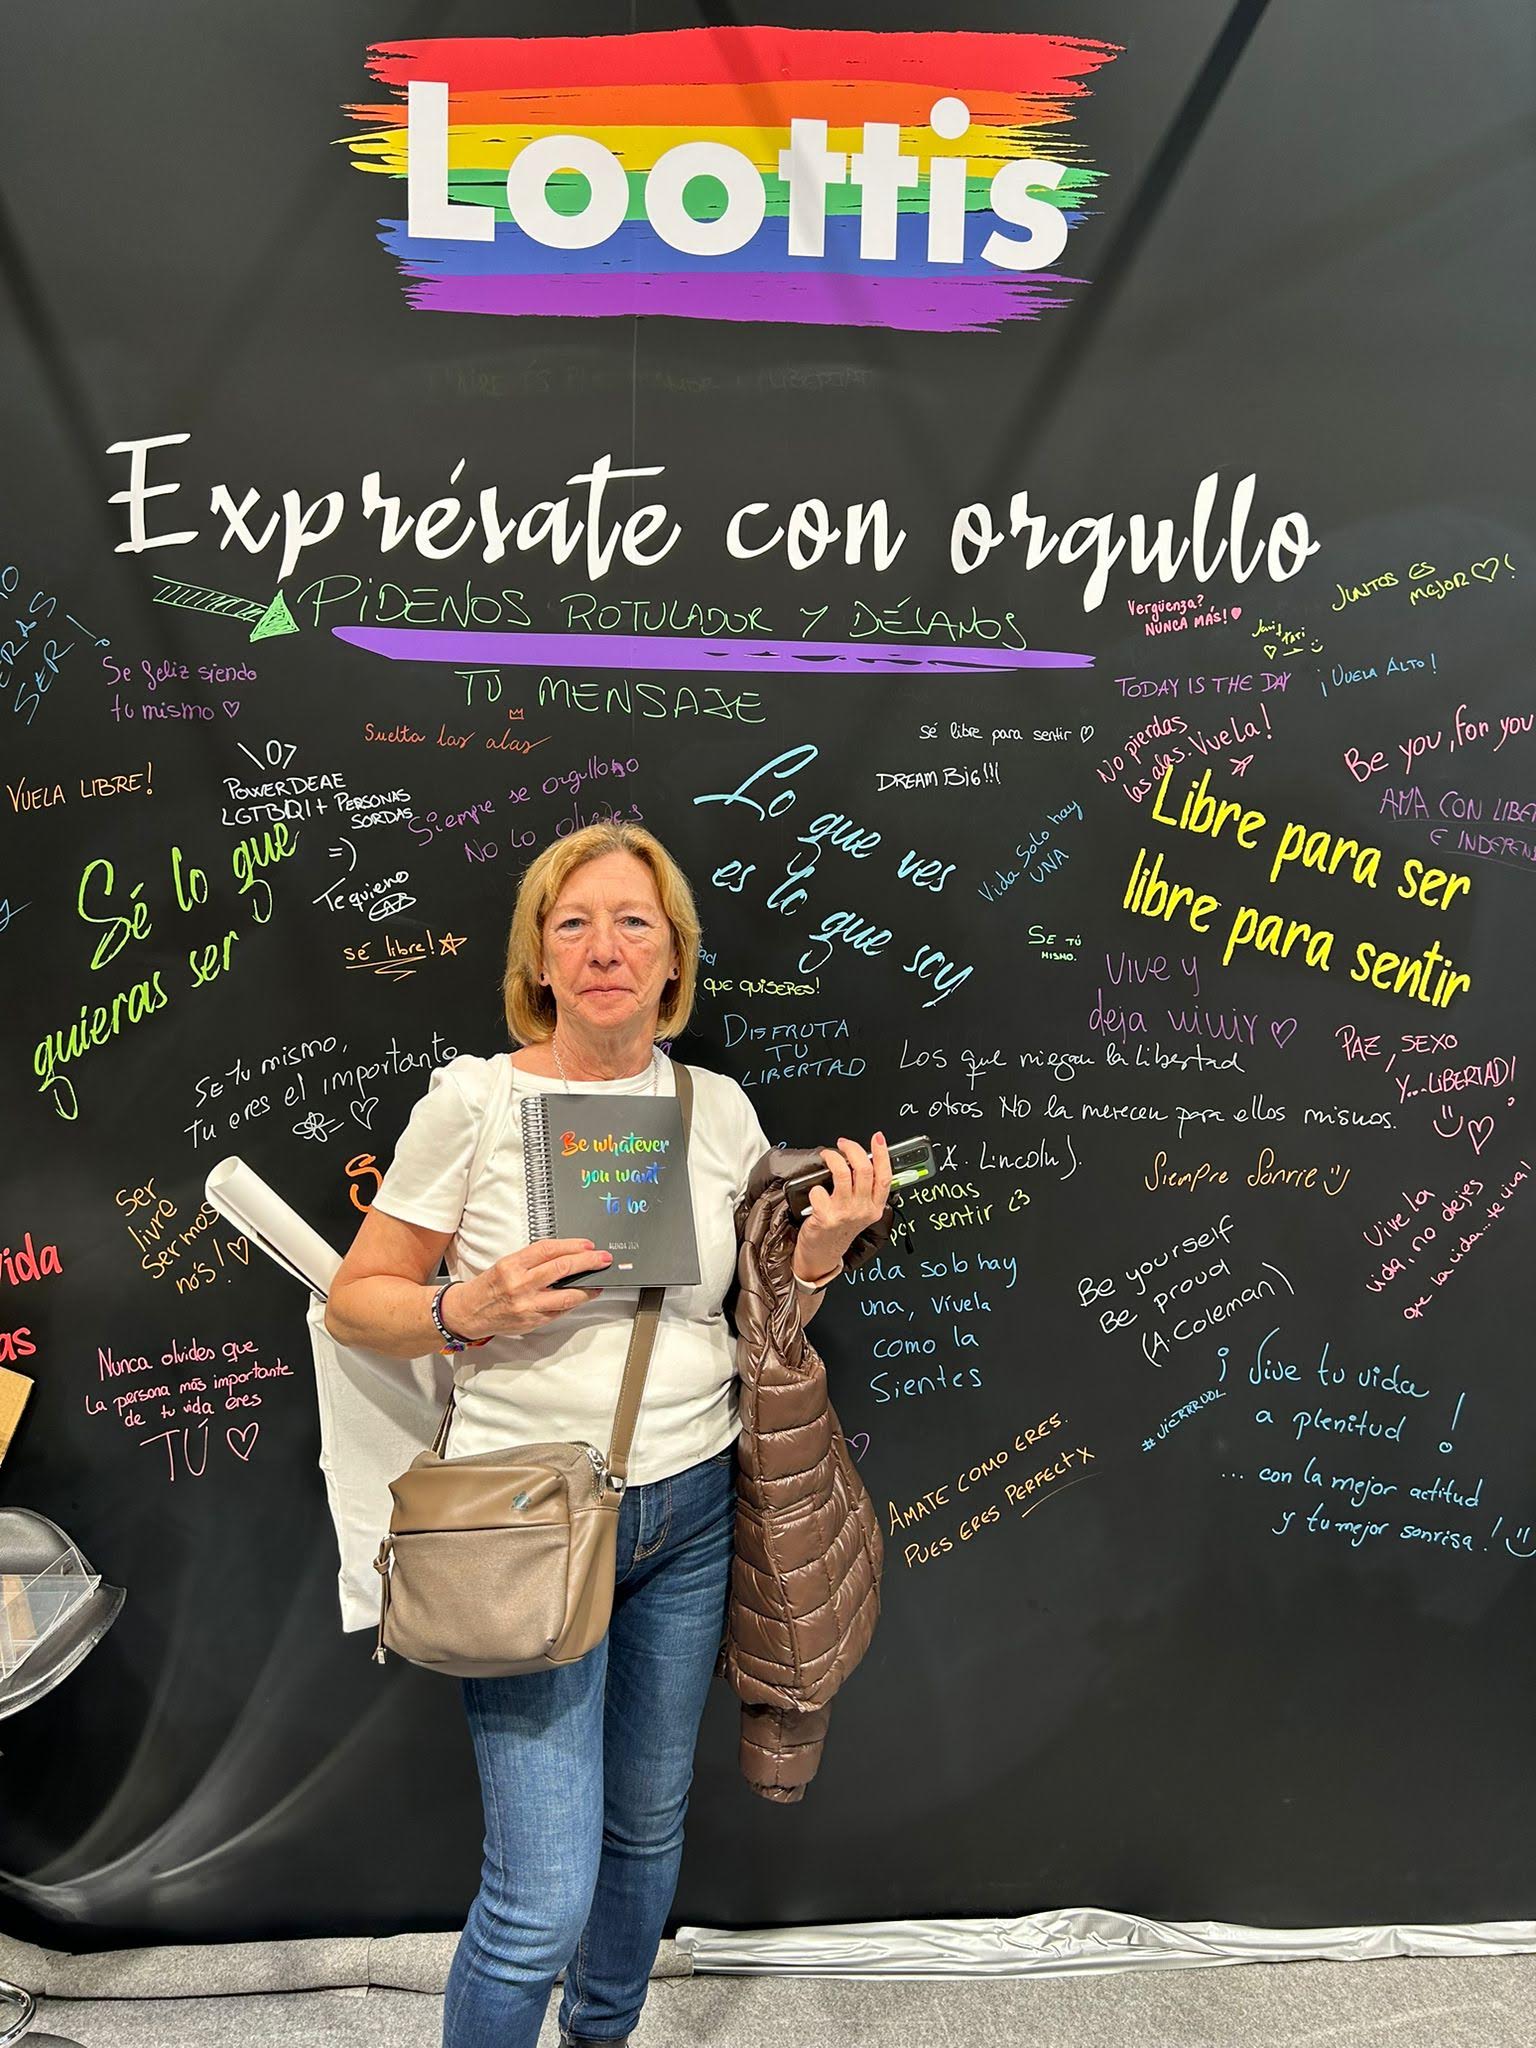 Loottis
Exprésate con orgullo
PIDENOS ROTULADOR Y DÉJANOS
TU MENSAJE
SER!
Se feliz siendo
tu mismo
Suelta las alas
VUELA LIBRE!
POWER DEAE
LGTBIQI+ PERSONAS
SORDAS
=)
Te quiero
Siempre se orgulloso
No lo olvides
Sé lo que
quieras ser
sé libre!
Lo que ves
es lo que soy
sé libre para sentir
DREAM BIG!!!
Vida solo hay
UNA
SE TÚ
MISMO.
Vergüenza?
NUNCA MÁS!
JUNTOS ES
MEJOR !
TODAY IS THE DAY
¡VUELA ALTO!
No pierdas
las alas. Vuela!
Be you, for you
AMA CON LIBER
E INDEPEN
Libre para ser
libre para sentir
VIVE Y
deja vivir
PAZ, SEXO
Y...LIBERTAD!
QUE QUISERES!
DISFRUTA
TU
LIBERTAD
Los que niegan la libertad
a otros NO la merecen para ellos mismos.
(A. Lincoln).
SE tu mismo,
Tu eres el importante
Ser
livre
Sermos
nós!
Be whatever
you want
to be
AGENDA 2024
temas
por sentir <3
Vida solo hay
una, vívela
como la
sientes
Siempre Sonríe
Be yourself
Be proud
(A. Coleman)
Vive la
vida, no dejes
que la vida... te viva!
vida
as
Nunca olvides que
La persona más importante
de tu vida eres
TÚ
AMATE COMO ERES.
PUES ERES PERFECTX
¡Vive tu vida
a plenitud!
... con la mejor actitud
y tu mejor sonrisa!